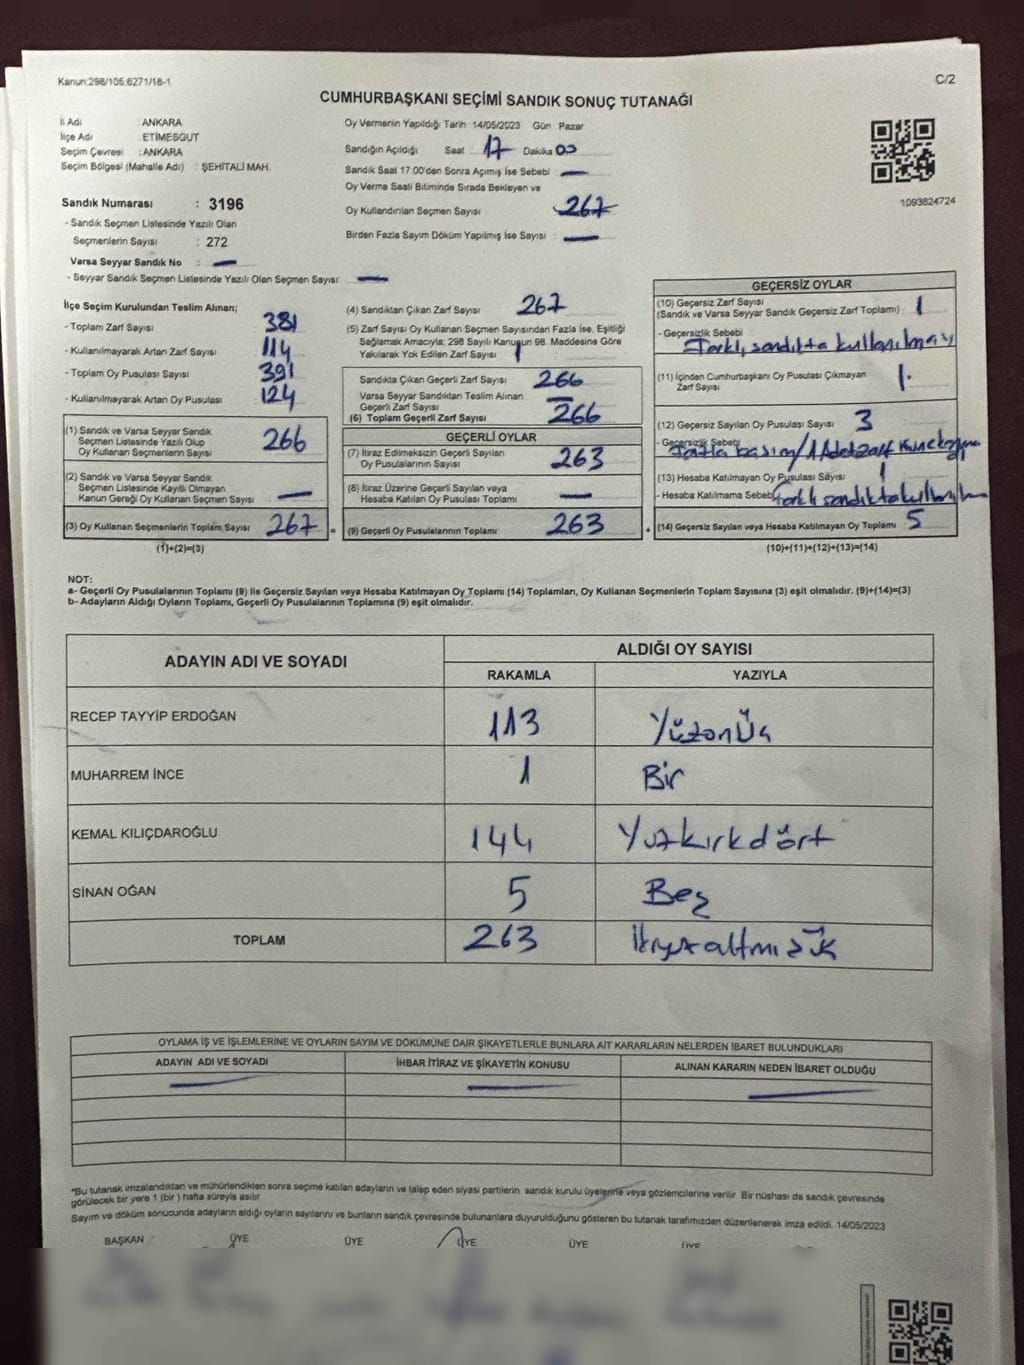 Kanun:298/105;6271/18-1
C/2
CUMHURBAŞKANI SEÇİMİ SANDIK SONUÇ TUTANAĞI
İl Adı : ANKARA
İlçe Adı : ETİMESGUT
Seçim Çevresi : ANKARA
Seçim Bölgesi (Mahalle Adı) : ŞEHİTALİ MAH.
Sandık Numarası : 3196
- Sandık Seçmen Listesinde Yazılı Olan
Seçmenlerin Sayısı : 272
Varsa Seyyar Sandık No : —
- Seyyar Sandık Seçmen Listesinde Yazılı Olan Seçmen Sayısı: —
Oy Vermenin Yapıldığı Tarih 14/05/2023 Gün : Pazar
Sandığın Açıldığı Saat 17 Dakika 00
Sandık Saat 17.00'den Sonra Açımış İse Sebebi : —
Oy Verme Saati Bitiminde Sırada Bekleyen ve
Oy Kullandırılan Seçmen Sayısı : 267
Birden Fazla Sayım Döküm Yapılmış İse Sayısı : —
1093824724
İlçe Seçim Kurulundan Teslim Alınan;
- Toplam Zarf Sayısı : 381
- Kullanılmayarak Artan Zarf Sayısı : 114
- Toplam Oy Pusulası Sayısı : 391
- Kullanılmayarak Artan Oy Pusulası : 124
(1) Sandık ve Varsa Seyyar Sandık
Seçmen Listesinde Yazılı Olup
Oy Kullanan Seçmenlerin Sayısı : 266
(2) Sandık ve Varsa Seyyar Sandık
Seçmen Listesinde Kayıtlı Olmayan
Kanun Gereği Oy Kullanan Seçmen Sayısı : —
(3) Oy Kullanan Seçmenlerin Toplam Sayısı : 267 =
(1)+(2)=(3)
(4) Sandıktan Çıkan Zarf Sayısı : 267
(5) Zarf Sayısı Oy Kullanan Seçmen Sayısından Fazla İse, Eşitliği
Sağlamak Amacıyla; 298 Sayılı Kanunun 98. Maddesine Göre
Yakılarak Yok Edilen Zarf Sayısı : 1
Sandıkta Çıkan Geçerli Zarf Sayısı : 266
Varsa Seyyar Sandıktan Teslim Alınan
Geçerli Zarf Sayısı : —
(6) Toplam Geçerli Zarf Sayısı : 266
GEÇERLİ OYLAR
(7) İtiraz Edilmeksizin Geçerli Sayılan
Oy Pusulalarının Sayısı : 263
(8) İtiraz Üzerine Geçerli Sayılan veya
Hesaba Katılan Oy Pusulası Toplamı : —
(9) Geçerli Oy Pusulalarının Toplamı : 263 +
GEÇERSİZ OYLAR
(10) Geçersiz Zarf Sayısı
(Sandık ve Varsa Seyyar Sandık Geçersiz Zarf Toplamı) : 1
- Geçersizlik Sebebi
farklı sandıkta kullanılmay
(11) İçinden Cumhurbaşkanı Oy Pusulası Çıkmayan
Zarf Sayısı : 1
(12) Geçersiz Sayılan Oy Pusulası Sayısı : 3
- Geçersizlik Sebebi
fazla basım/1 Adet zarf
(13) Hesaba Katılmayan Oy Pusulası Sayısı : 1
- Hesaba Katılmama Sebebi farklı sandıkta
(14) Geçersiz Sayılan veya Hesaba Katılmayan Oy Toplamı : 5
(10)+(11)+(12)+(13)=(14)
NOT:
a- Geçerli Oy Pusulalarının Toplamı (9) ile Geçersiz Sayılan veya Hesaba Katılmayan Oy Toplamı (14) Toplamları, Oy Kullanan Seçmenlerin Toplam Sayısına (3) eşit olmalıdır. (9)+(14)=(3)
b- Adayların Aldığı Oyların Toplamı, Geçerli Oy Pusulalarının Toplamına (9) eşit olmalıdır.
ADAYIN ADI VE SOYADI
ALDIĞI OY SAYISI
RAKAMLA YAZIYLA
RECEP TAYYİP ERDOĞAN 113 Yüzonüç
MUHARREM İNCE 1 Bir
KEMAL KILIÇDAROĞLU 144 Yuzkırkdört
SİNAN OĞAN 5 Beş
TOPLAM 263
OYLAMA İŞ VE İŞLEMLERİNE VE OYLARIN SAYIM VE DÖKÜMÜNE DAİR ŞİKAYETLERLE BUNLARA AİT KARARLARIN NELERDEN İBARET BULUNDUKLARI
ADAYIN ADI VE SOYADI İHBAR İTİRAZ VE ŞİKAYETİN KONUSU ALINAN KARARIN NEDEN İBARET OLDUĞU
— — —
*Bu tutanak imzalandıktan ve mühürlendikten sonra seçime katılan adayların ve talep eden siyasi partilerin sandık kurulu üyelerine veya gözlemcilerine verilir. Bir nüshası da sandık çevresinde
görülecek bir yere 1 (bir ) hafta süreyle asılır
Sayım ve döküm sonucunda adayların aldığı oyların sayılarını ve bunların sandık çevresinde bulunanlara duyurulduğunu gösteren bu tutanak tarafımızdan düzenlenerek imza edildi. 14/05/2023
BAŞKAN ÜYE ÜYE ÜYE ÜYE ÜYE